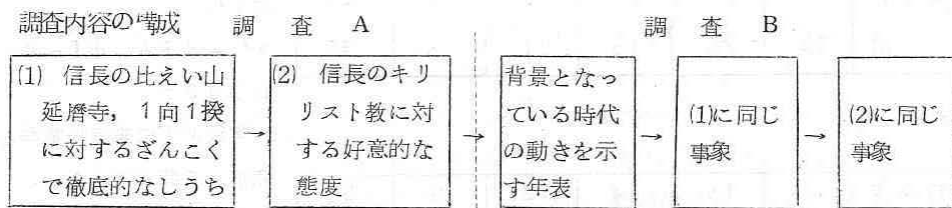 調査内容の構成 調査 A 調査 B
(1) 信長の比えい山
延暦寺，1向1揆
に対するざんこく
で徹底的なしうち
→
(2) 信長のキリ
リスト教に対
する好意的な
態度
→
背景となっ
ている時代
の動きを示
す年表
→
(1)に同じ
事象
→
(2)に同じ
事象